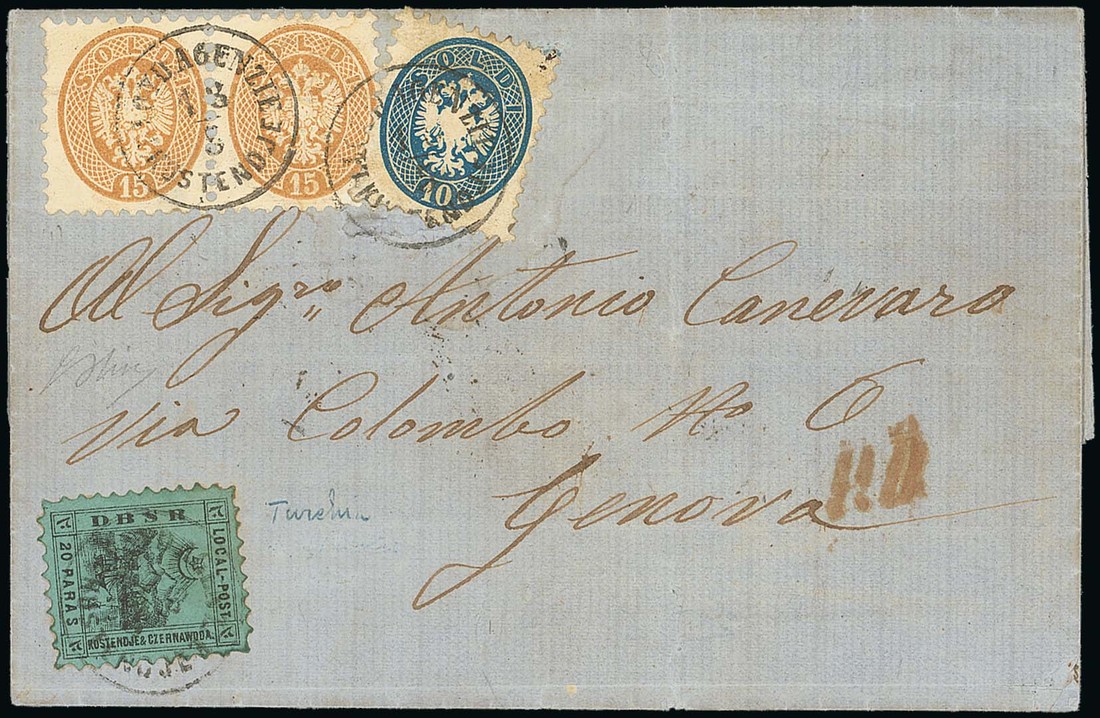 SOLDI
15
SOLDI
15
SOLDI
10
AGENZIE
18
8
KOSTENDJE
Al Sigro Antonio Canevaro
via Colombo No 6
Genova
P.D.
Turchia
DBSR
LOCAL-POST.
20 PARAS
KOSTENDJE & CZERNAWODA.